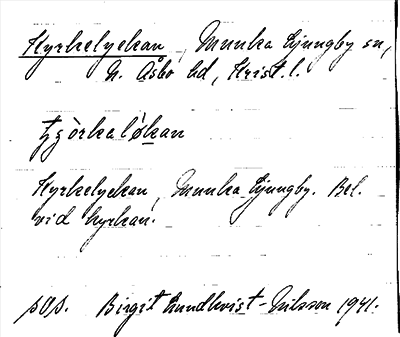 Kyrkelyckan, Munka Ljungby sn,
N. Åsbo hd, Krist. l.
Kyrkelyckan, Munka Ljungby. Bel.
vid kyrkan.
pos. Birgit Lundkvist-Nilsson 1941.